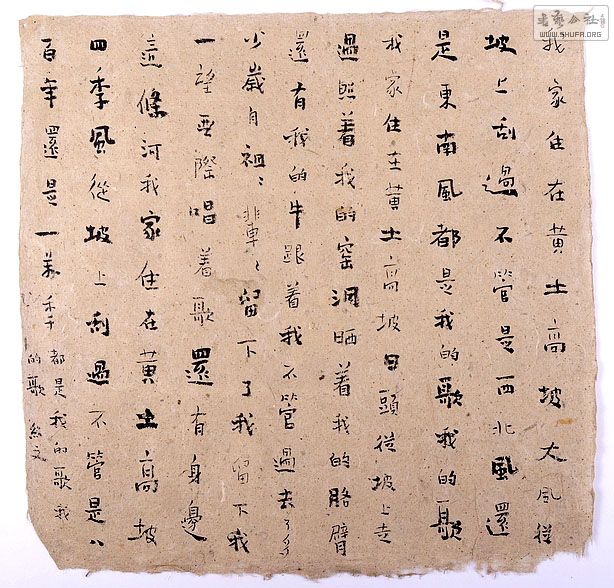 我家住在黄土高坡大风從
坡上刮過不管是西北風還
是東南風都是我的歌我的歌
我家住在黄土高坡日頭從坡上走
過照着我的窑洞晒着我的胳臂
還有我的牛跟着我不管過去了多
少歲月祖〻輩〻留下了我留下我
一望無際唱着歌還有身邊
這條河我家住在黄土高坡
四季風從坡上刮過不管是八
百年還是一萬年
都是我的歌我
的歌
WWW.SHUFA.ORG